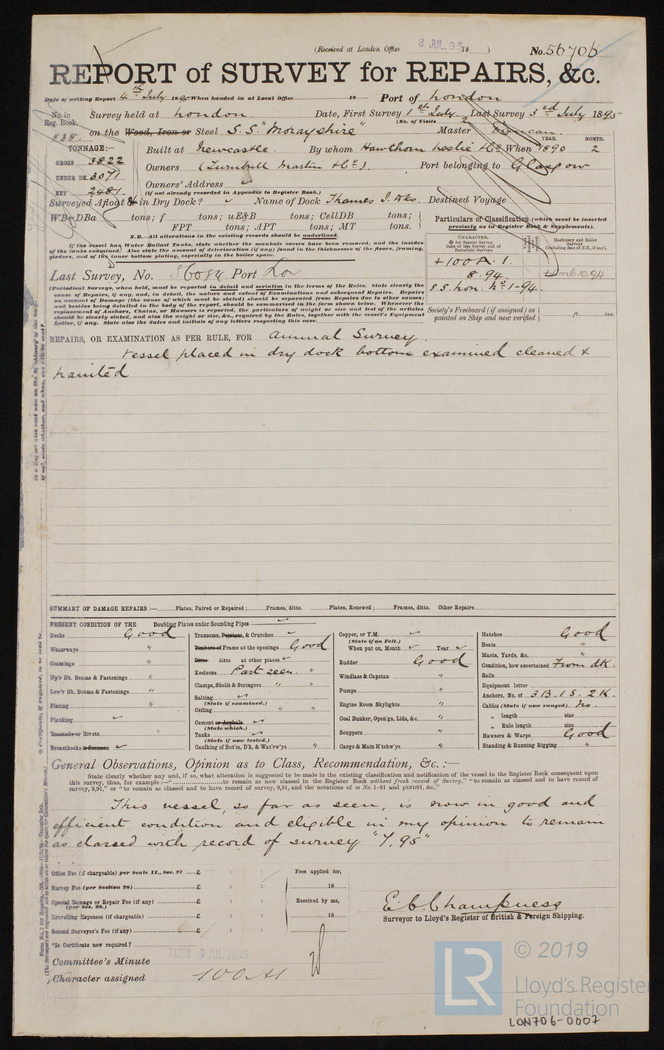 (Received at London Office 8 JUL.95 18 ) No. 56706
REPORT of SURVEY for REPAIRS, &c.
Date of writing Report 4th July 1895 When handed in at Local Office 18 Port of London
No. in Reg. Book. Survey held at London Date, First Survey 1st July Last Survey 3rd July 1895
(No. of Visits 2 )
838 on the Wood, Iron or Steel S.S. "Morayshire" Master Duncan
TONNAGE:— Built at Newcastle By whom Hawthorn Leslie & Co When 1890 2
YEAR. MONTH.
GROSS 3822
Owners (Turnbull Martin & Co.) Port belonging to Glasgow
UNDER DK. 3071
Owners' Address
(if not already recorded in Appendix to Register Book.)
NET 2481
Surveyed Afloat & in Dry Dock? Name of Dock Thames I. Wks. Destined Voyage
WB=DBa tons; f tons; uE&B tons; CellDB tons;
FPT tons; APT tons; MT tons.
N.B.—All alterations in the existing records should be underlined.
If the vessel has Water Ballast Tanks, state whether the manhole covers have been removed, and the insides
of the tanks examined. Also state the amount of deterioration (if any) found in the thicknesses of the floors, framing,
girders, and of the inner bottom plating, especially in the boiler space.
Particulars of Classification (which must be inserted
precisely as in Register Book & Supplements).
CHARACTER. Machinery and Boiler Surveys
+100A.1.
8.94.
S.S. Lon. No 1-94.
Last Survey, No. 56084 Port Lo
(Periodical Surveys, when held, must be reported in detail and seriatim in the terms of the Rules. State clearly the
cause of Repairs, if any, and, in detail, the nature and extent of Examinations and subsequent Repairs. Repairs
on account of Damage (the cause of which must be stated) should be separated from Repairs due to other causes;
and besides being detailed in the body of the report, should be summarised in the form shown below. Whenever the
replacement of Anchors, Chains, or Hawsers is reported, the particulars of weight or size and test of the articles
should be clearly stated, and also the weight or size, &c., required by the Rules, together with the vessel's Equipment
Letter, if any. State also the dates and initials of any letters respecting this case.
Society's Freeboard (if assigned) as
painted on Ship and now verified ft. ins.
REPAIRS, OR EXAMINATION AS PER RULE, FOR Annual Survey.
Vessel placed in dry dock bottom examined cleaned &
painted
SUMMARY OF DAMAGE REPAIRS :— Plates, Faired or Repaired ; Frames, ditto. Plates, Renewed ; Frames, ditto. Other Repairs.
PRESENT CONDITION OF THE Doubling Plates under Sounding Pipes
Decks Good
Waterways "
Coamings "
Up'r Dk. Beams & Fastenings "
Low'r Dk. Beams & Fastenings "
Plating "
Planking
Treenails or Rivets "
Breasthooks & Pointers "
Transoms, Pointers, & Crutches
Timbers or Frame at the openings Good
Ditto ditto at other places
Keelsons Part seen. "
Clamps, Shelfs & Stringers " "
Salting
(State if examined.)
Ceiling "
Cement or Asphalt
(State which.)
Tanks
(State if now tested.)
Caulking of Bot'm, D'k, & Wat'rw'ys "
Copper, or Y.M.
(State if on Felt.)
When put on, Month Year
Rudder Good
Windlass & Capstan "
Pumps "
Engine Room Skylights "
Coal Bunker, Open'gs, Lids, &c. "
Scuppers "
Cargo & Main H'tchw'ys "
Hatches Good
Boats "
Masts, Yards, &c. "
Condition, how ascertained From dk.
Sails
Equipment letter
Anchors, No. of 3B. 1S. 2K.
Cables (State if now ranged) No.
" length size
" Rule length size
Hawsers & Warps Good
Standing & Running Rigging "
General Observations, Opinion as to Class, Recommendation, &c. :—
State clearly whether any, and if so, what alteration is suggested to be made in the existing classification and notification of the vessel in the Register Book consequent upon
this survey, thus, for example:—"..............to remain as now classed in the Register Book without fresh record of Survey," "to remain as classed and to have record of
survey, 9,91," or "to remain as classed and to have record of survey, 9,91, and the notations of ss No. 1-91 and ptND91, &c."
This vessel, so far as seen, is now in good and
efficient condition and eligible in my opinion to remain
as classed with record of survey "7,95"
Office Fee (if chargeable) per Scale II., Sec. 27 £ : : Fees applied for,
Survey Fee (per Section 28) £ : : 18
Special Damage or Repair Fee (if any) (per Sec. 28.) £ : : Received by me,
Travelling Expenses (if chargeable) £ : : 18
Second Surveyor's Fee (if any) £ : :
E C Champness
Surveyor to Lloyd's Register of British & Foreign Shipping.
*Is Certificate now required?
Committee's Minute TUES 9 JUL 1895
Character assigned 100A1
© 2019
LR
Lloyd's Register
Foundation
LON706-0007